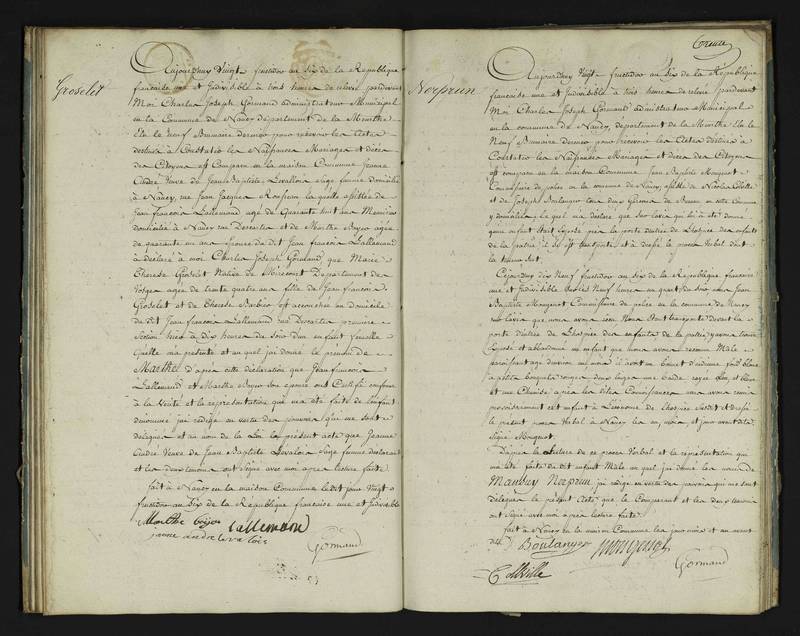 Groselet
Aujourdhuy Vingt fructidor an Six de la République
française une et Indivisible à trois heures de relevée pardevant
Moi Charles Joseph Gormand administrateur Municipal
en la Commune de Nancy département de la Meurthe
Elu le neuf Brumaire dernier pour recevoir les Actes
destinés à Constater les Naissances Mariages et décès
des Citoyens est Comparu en la maison Commune Jeanne
Andre Veuve de Jean Baptiste Levallois Sage femme domiciliée
à Nancy, rue Jean Jacques Rousseau laquelle assistée de
Jean François Lallemand agé de Quarante huit ans Menuisier
domicilié à Nancy rue Descartes et de Marthe Boyer agée
de quarante un ans épouse du dit Jean françois Lallemand
à déclaré à moi Charles Joseph Gormand que Marie
Therese Groselet Native de Mirecourt Département des
Vosges agée de trente quatre ans fille de Jean francois
Groselet et de Therese Barbier est accouchée au Domicile
du dit Jean françois Lallemand rue Descartes premiere
Section hier à dix heures du Soir d'un enfant femelle
Quelle ma présenté et auquel j'ai donné le prenom de
Marthe d'après cette déclaration que Jean francois
Lallemand et Marthe Boyer Son épouse ont Certifié conforme
à la Verité et la représentation qui ma été faite de l'enfant
denommé j'ai rédigé en vertu des pouvoirs qui me sont
délégués et au nom de la Loi le present acte que Jeanne
Andre Veuve de Jean Baptiste Levalois Sage femme declarant
et les deux temoins ont Signé avec moi apres lecture faite.
fait à Nancy en la maison Commune le dit jour Vingt
fructidor an Six de la République française une et Indivisible
Marthe boyer Lallemand
jeanne andre levalois
Gormand
Nerprun
Aujourdhuy Vingt fructidor an Six de la République
française une et Indivisible à trois heures de relevée pardevant
Moi Charles Joseph Gormand administrateur Municipal
en la commune de Nancy, département de la Meurthe Elu le
Neuf Brumaire dernier pour recevoir les Actes destinés à
Constater les Naissances Mariages et décès des Citoyens
est comparu en la maison Commune Jean Baptiste Mougenot
Commissaire de police en la commune de Nancy assisté de Nicolas Colville
et de Joseph Boulanger tous deux en cette Commune
y domiciliés, Lequel m'a déclaré que sur l'avis qui lui à été donné
qu'un enfant était exposé près la porte d'entrée de l'hospice des enfants
de la patrie il s'y est transporté, et à dressé le procès Verbal dont
la teneur suit.
Cejourdhuy dix Neuf fructidor an Six de la République française
une et indivisible vers les Neuf heures un quart du soir nous Jean
Baptiste Mougenot Commissaire de police en la commune de Nancy
sur l'avis que nous avons eu Nous étant transporté devant la
porte d'entrée de l'hospice des enfants de la patrie y avons trouvé
Exposé et abandonné un enfant que nous avons reconnu Male
paraissant agé d'environ un mois il avait un bonnet d'indienne fond blanc
à petits bouquets rouges
et une Chemise après les titres nous avons remis
provisoirement cet enfant à l'économe de l'hospice Susdit et dressé
le présent procès Verbal à Nancy les an, mois et jour avant dits
Signé Mougenot.
D'après la Lecture de ce procès Verbal et la représentation qui
ma été faite du dit enfant Mâle auquel j'ai donné les noms de
Mansuy Nerprun j'ai rédigé en vertu des pouvoirs qui me sont
délégués le présent Acte que le Comparant et les deux temoins
ont Signé avec moi apres lecture faite.
fait à Nancy en la maison Commune les jour mois et an avant
dits. Boulanger Mougenot
Colville Gormand